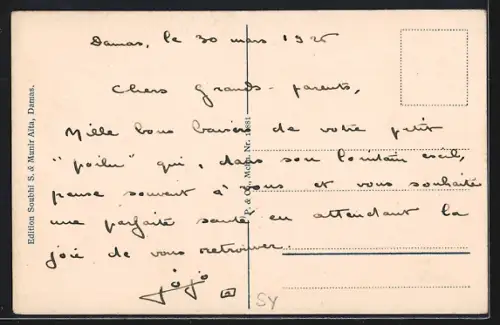 Damas, le 30 mars 1926
Chers grands-parents,
Mille bons baisers de votre petit
"poilu" qui, dans son lointain exil,
pense souvent à vous et vous souhaite
une parfaite santé en attendant la
joie de vous retrouver.
Jojo
SY
Edition Soubhi S. & Munir Aïta, Damas.